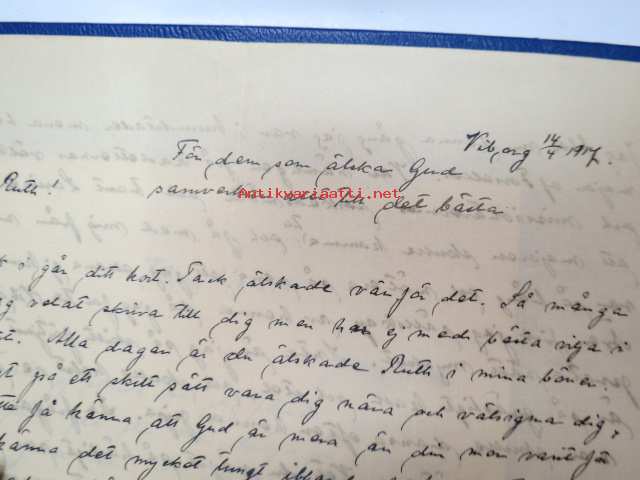 Viborg 14/4 1917.
För dem som älska Gud
samverkar allt till det bästa
Antikvariaatti.net
Ruth!
i går ditt kort. Tack älskade vän för det. Så många
velat skriva till dig men har ej med bästa vilja i
Alla dagar är du älskade Ruth i mina böner.
på ett skilt sätt vara dig nära och välsigna dig,
få känna att Gud är mera än din mor varit för
känna det mycket tungt